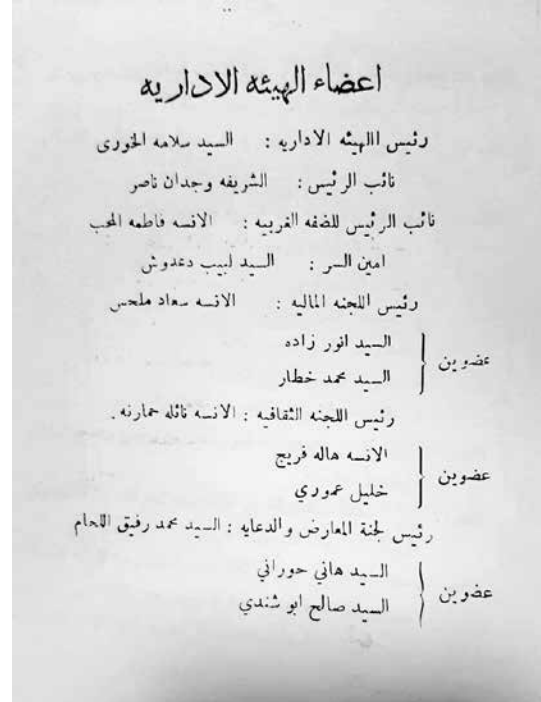 اعضاء الهيئه الاداريه
رئيس االهيئه الاداريه : السيد سلامه الخورى
نائب الرئيس : الشريفه وجدان ناصر
نائب الرئيس للضفه الغربيه : الانسه فاطمه المحب
امين السر : السيد لبيب دعدوش
رئيس اللجنه الماليه : الانسه سعاد ملحس
السيد انور زاده
عضوين
السيد محمد خطار
رئيس اللجنه الثقافيه : الانسه نائله حمارنه .
الانسه هاله فريج
عضوين
خليل عموري
رئيس لجنة المعارض والدعايه : السيد محمد رفيق اللحام
السيد هاني حوراني
عضوين
السيد صالح ابو شندي